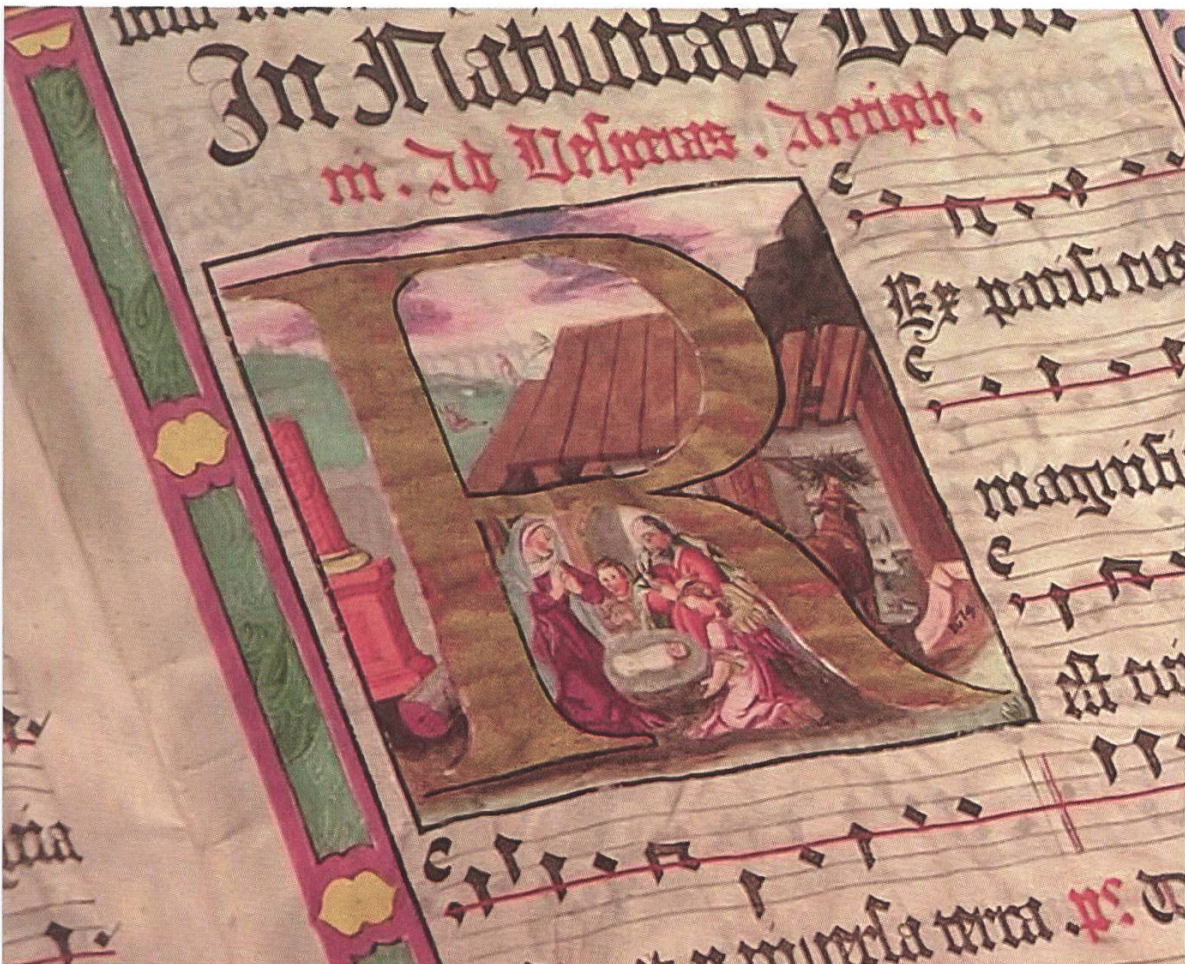 In Natiuitate Domi
ni . Ad Vesperas . Antiph.
R
Ex pacificus
magnifi
1674
est cui
vniuersa terra . ps: